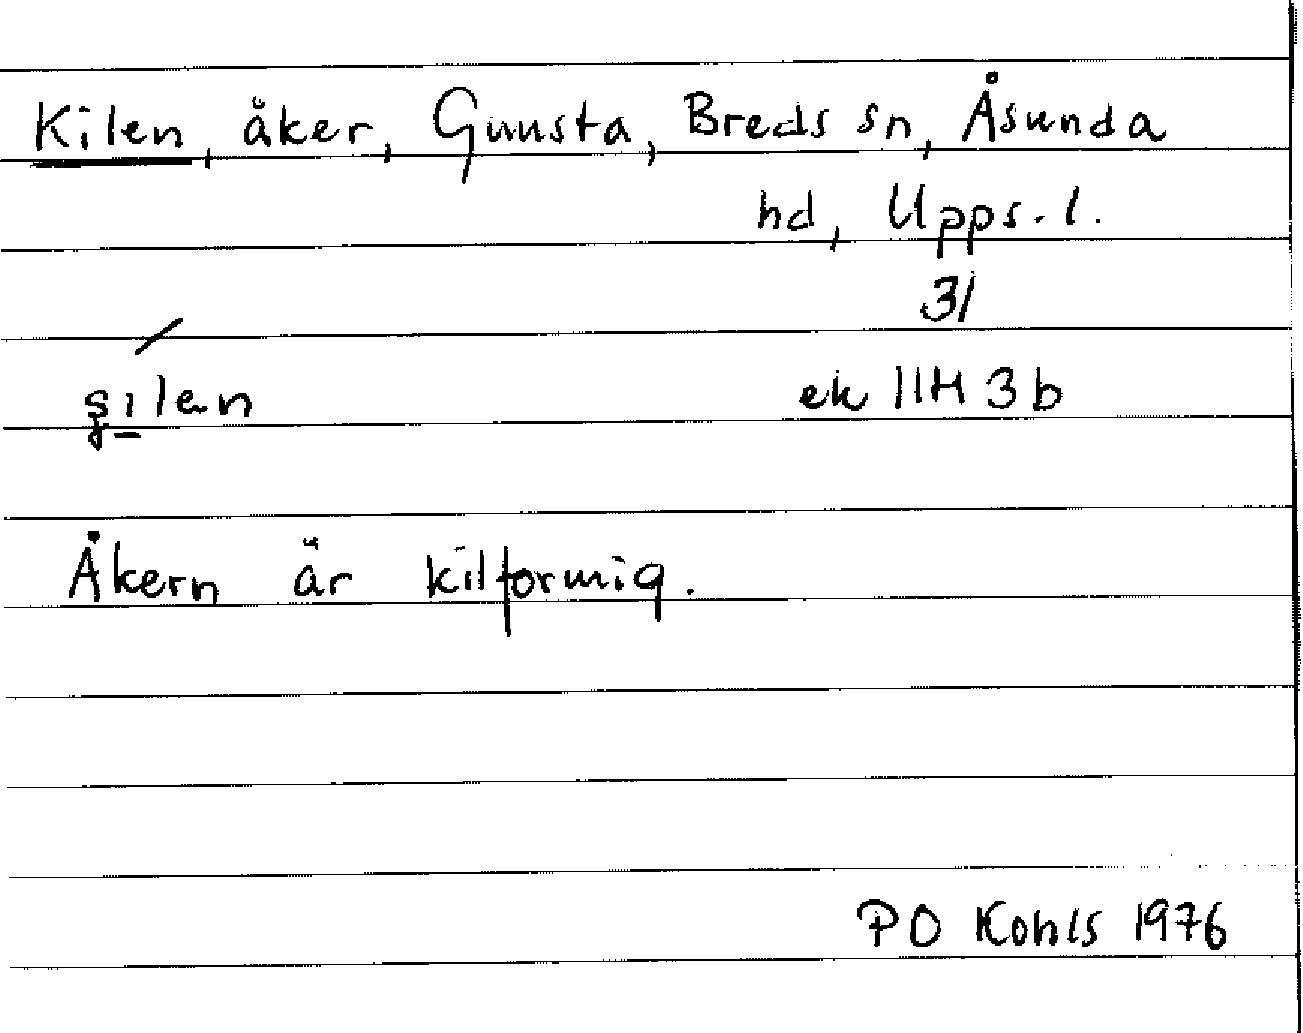 Kilen, åker, Gunsta, Breds sn, Åsunda
hd, Upps. l.
31
ek 11H 3b
Åkern är kilformig.
PO Kohls 1976